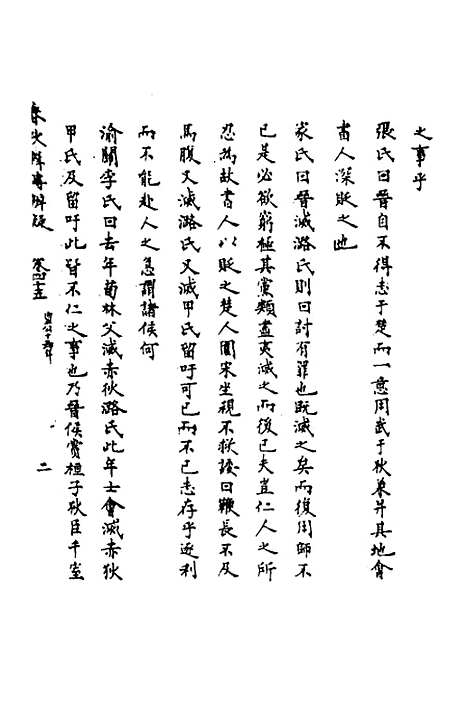 之事乎
張氏曰晉自不得志于楚而一意用武于狄兼并其地會
書人深貶之也
家氏曰晉滅潞氏則曰討有罪也既滅之矣而復用師不
已是必欲窮極其黨類盡夷滅之而後已夫豈仁人之所
忍為故書人以貶之楚人圍宋坐視不救諉曰鞭長不及
馬腹又滅潞氏又滅甲氏留吁可已而不已志存乎逐利
而不能赴人之急謂諸侯何
渝關李氏曰去年荀林父滅赤狄潞氏此年士會滅赤狄
甲氏及留吁此皆不仁之事也乃晉侯賞桓子狄臣千室
春秋闕傳辨疑 卷四十五 宣公十六年 二